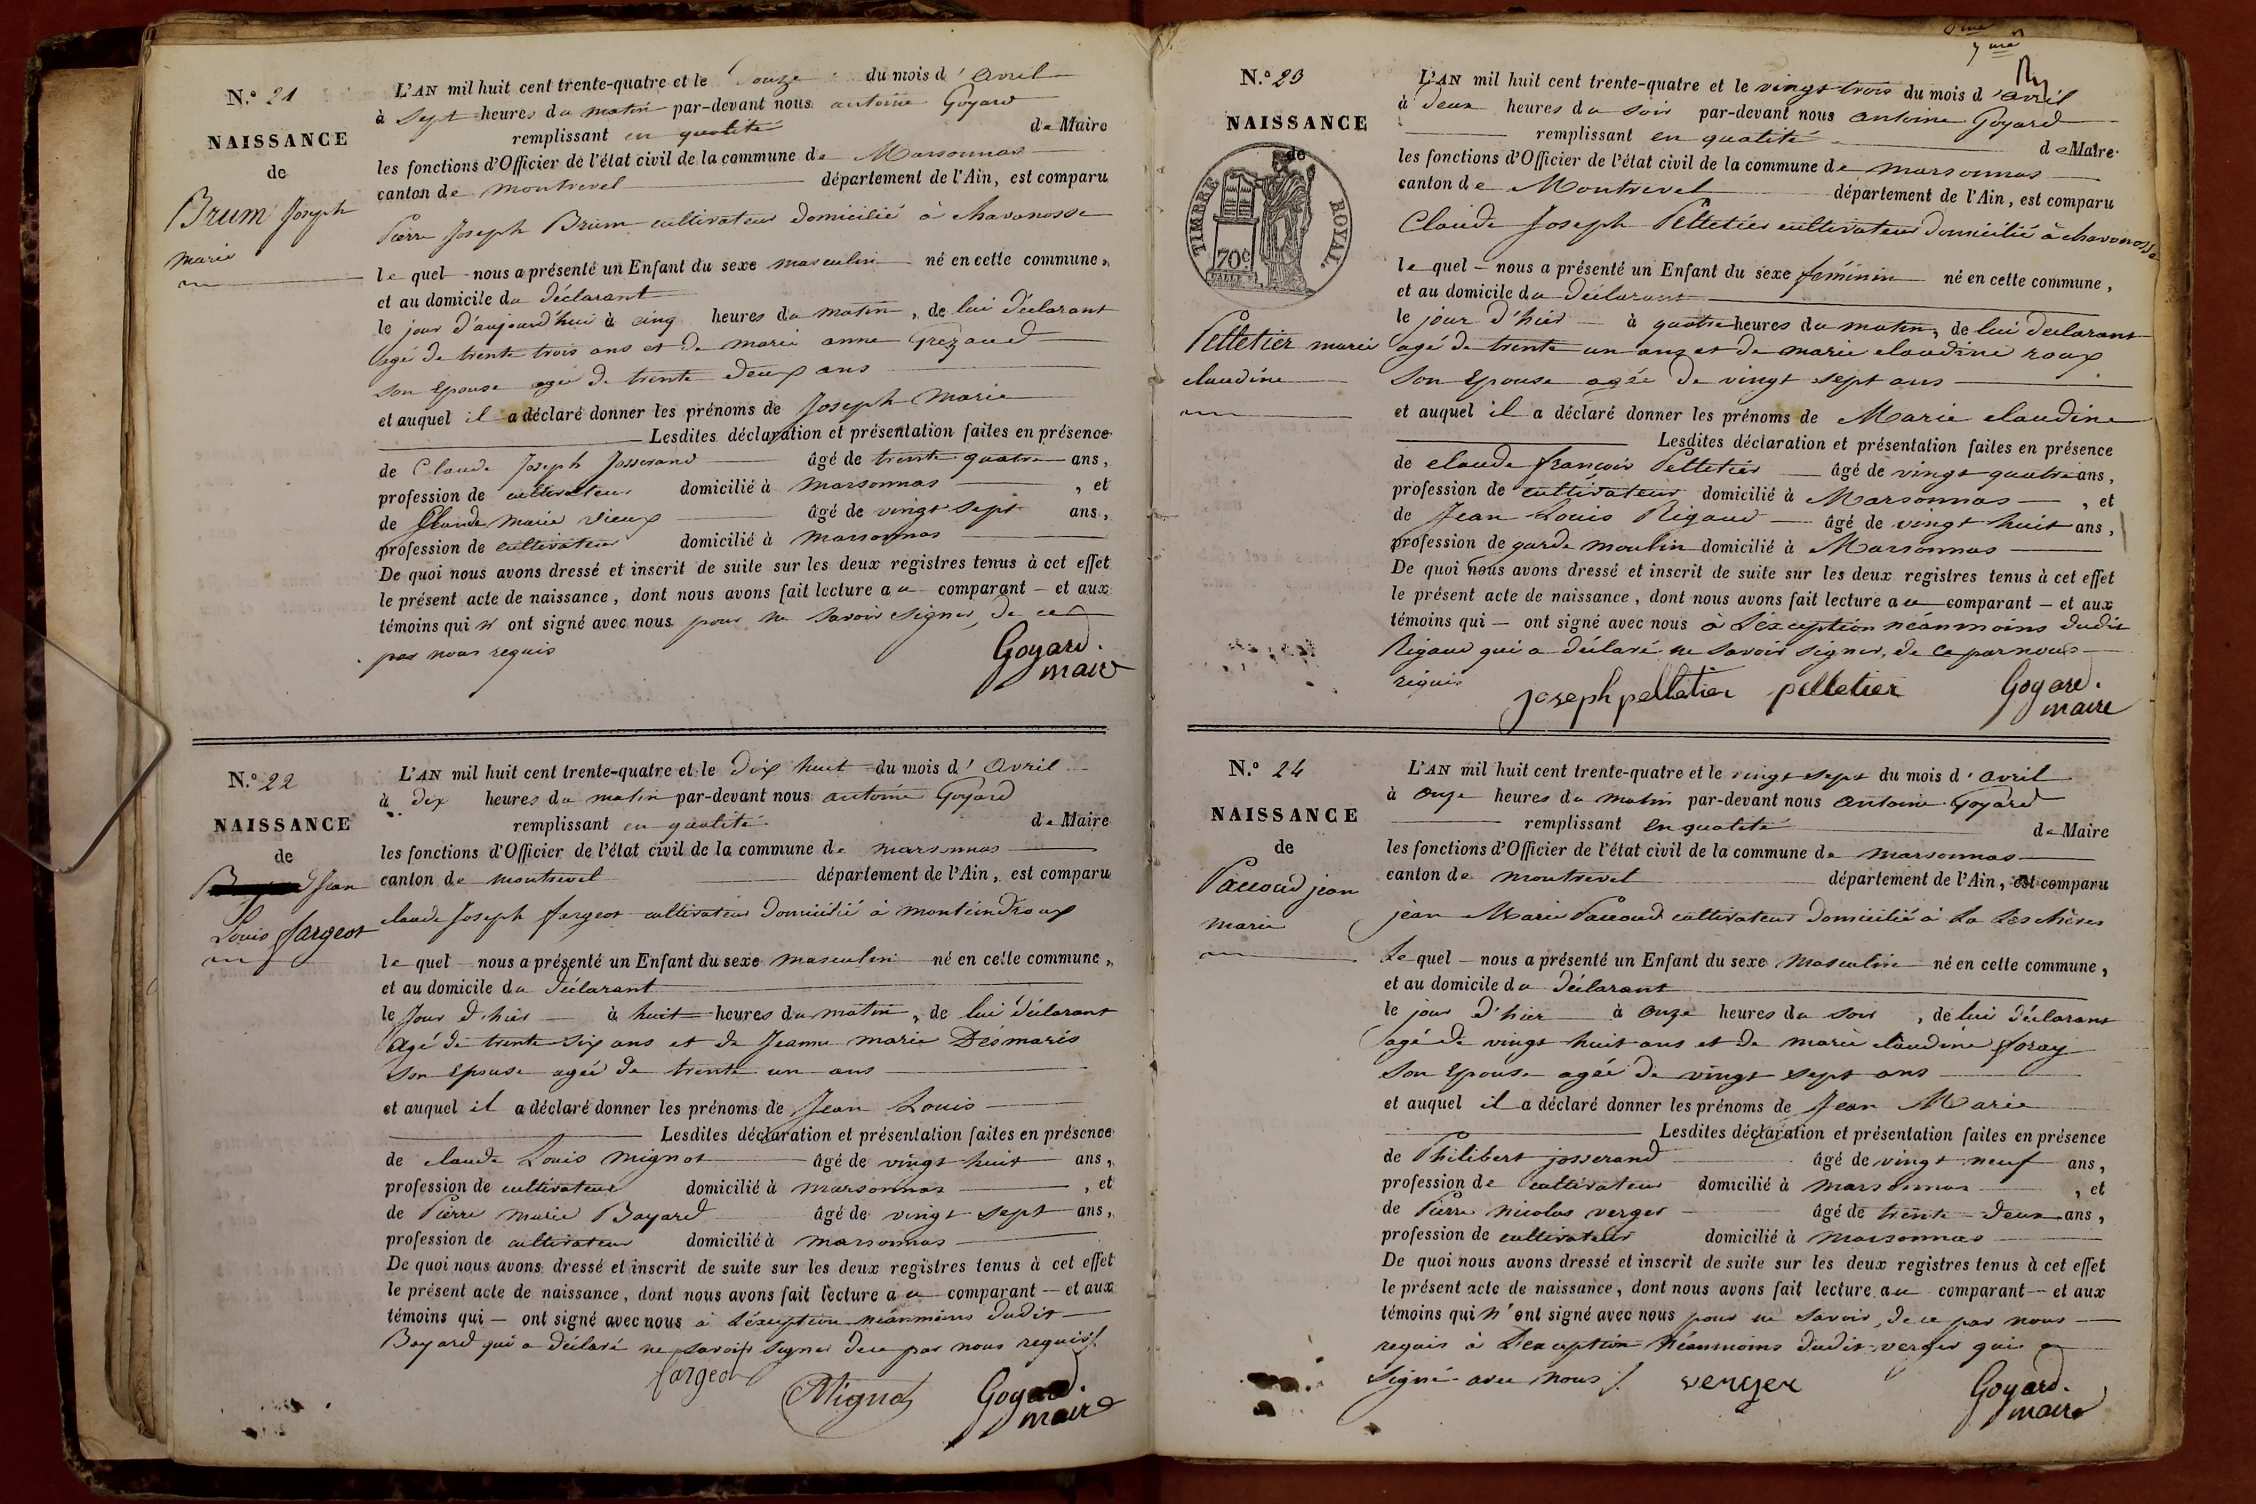 N.º 21
NAISSANCE
de
Brum Joseph
marie
L'AN mil huit cent trente-quatre et le du mois d'avril
à sept heures du matin par-devant nous antoine Goyard
remplissant en qualité de Maire
les fonctions d'Officier de l'état civil de la commune de Marsonnas
canton de montrevel département de l'Ain, est comparu
Pierre Joseph Brum cultivateur domicilié à chavanosse
le quel nous a présenté un Enfant du sexe masculin né en cette commune,
et au domicile du déclarant
le jour d'aujourd'hui à cinq heures du matin, de lui déclarant
agé de trente trois ans et de marie anne Grezaud
son Epouse agée de trente deux ans
et auquel il a déclaré donner les prénoms de Joseph Marie
Lesdites déclaration et présentation faites en présence
de Claude Joseph Josserand âgé de trente quatre ans,
profession de cultivateur domicilié à marsonnas, et
de Claude marie vieux âgé de vingt sept ans,
profession de cultivateur domicilié à marsonnas
De quoi nous avons dressé et inscrit de suite sur les deux registres tenus à cet effet
le présent acte de naissance, dont nous avons fait lecture au comparant — et aux
témoins qui n'ont signé avec nous pour ne savoir signer, de ce
par nous requis
Goyard.
maire
N.º 22
NAISSANCE
de
Jean
Louis fargeot
L'AN mil huit cent trente-quatre et le dix huit du mois d'avril
à dix heures du matin par-devant nous antoine Goyard
remplissant en qualité de Maire
les fonctions d'Officier de l'état civil de la commune de marsonnas
canton de montrevel département de l'Ain, est comparu
claude Joseph fargeot cultivateur domicilié à monteindroux
le quel nous a présenté un Enfant du sexe masculin né en cette commune,
et au domicile du déclarant
le Jour d'hier à huit heures du matin, de lui déclarant
agé de trente six ans et de Jeanne marie Désmaris
son Epouse agée de trente un ans
et auquel il a déclaré donner les prénoms de Jean Louis
Lesdites déclaration et présentation faites en présence
de claude Louis mignot âgé de vingt huit ans,
profession de cultivateur domicilié à marsonnas, et
de Pierre marie Bayard âgé de vingt sept ans,
profession de cultivateur domicilié à marsonnas
De quoi nous avons dressé et inscrit de suite sur les deux registres tenus à cet effet
le présent acte de naissance, dont nous avons fait lecture au comparant — et aux
témoins qui — ont signé avec nous à l'éxception néanmoins dudit
Bayard qui a déclaré ne savoir signer de ce par nous requis
fargeot
Mignot
Goyard.
maire
N.º 23
NAISSANCE
de
TIMBRE ROYAL
70c
Pelletier marie
claudine
L'AN mil huit cent trente-quatre et le vingt trois du mois d'avril
à deux heures du soir par-devant nous antoine Goyard
remplissant en qualité de Maire
les fonctions d'Officier de l'état civil de la commune de marsonnas
canton de Montrevel département de l'Ain, est comparu
Claude Joseph Pelletier cultivateur domicilié à chavanosse
le quel — nous a présenté un Enfant du sexe féminin né en cette commune,
et au domicile du déclarant
le jour d'hier à quatre heures du matin, de lui declarant
agé de trente un ans et de marie claudine roux
son Epouse agée de vingt sept ans
et auquel il a déclaré donner les prénoms de Marie claudine
Lesdites déclaration et présentation faites en présence
de claude françois Pelletier âgé de vingt quatre ans,
profession de cultivateur domicilié à Marsonnas, et
de Jean Louis Rigaud âgé de vingt huit ans,
profession de garde moulin domicilié à Marsonnas
De quoi nous avons dressé et inscrit de suite sur les deux registres tenus à cet effet
le présent acte de naissance, dont nous avons fait lecture au comparant — et aux
témoins qui — ont signé avec nous à l'éxception néanmoins dudit
Rigaud qui a déclaré ne savoir signer, de ce par nous
requis
joseph pelletier pelletier Goyard.
maire
N.º 24
NAISSANCE
de
Paccoud jean
marie
L'AN mil huit cent trente-quatre et le vingt sept du mois d'avril
à onze heures du matin par-devant nous antoine Goyard
remplissant en qualité de Maire
les fonctions d'Officier de l'état civil de la commune de marsonnas
canton de montrevel département de l'Ain, est comparu
jean Marie Paccoud cultivateur domicilié à La Leschères
Le quel — nous a présenté un Enfant du sexe masculin né en cette commune,
et au domicile du déclarant
le jour d'hier à onze heures du soir, de lui déclarant
agé de vingt huit ans et de marie claudine foray
son Epouse agée de vingt sept ans
et auquel il a déclaré donner les prénoms de Jean Marie
Lesdites déclaration et présentation faites en présence
de Philibert josserand âgé de vingt neuf ans,
profession de cultivateur domicilié à marsonnas, et
de Pierre nicolas verger âgé de trente deux ans,
profession de cultivateur domicilié à marsonnas
De quoi nous avons dressé et inscrit de suite sur les deux registres tenus à cet effet
le présent acte de naissance, dont nous avons fait lecture au comparant — et aux
témoins qui n'ont signé avec nous pour ne savoir, de ce par nous
requis à l'exception néanmoins dudit verger qui a
signé avec nous verger Goyard.
maire